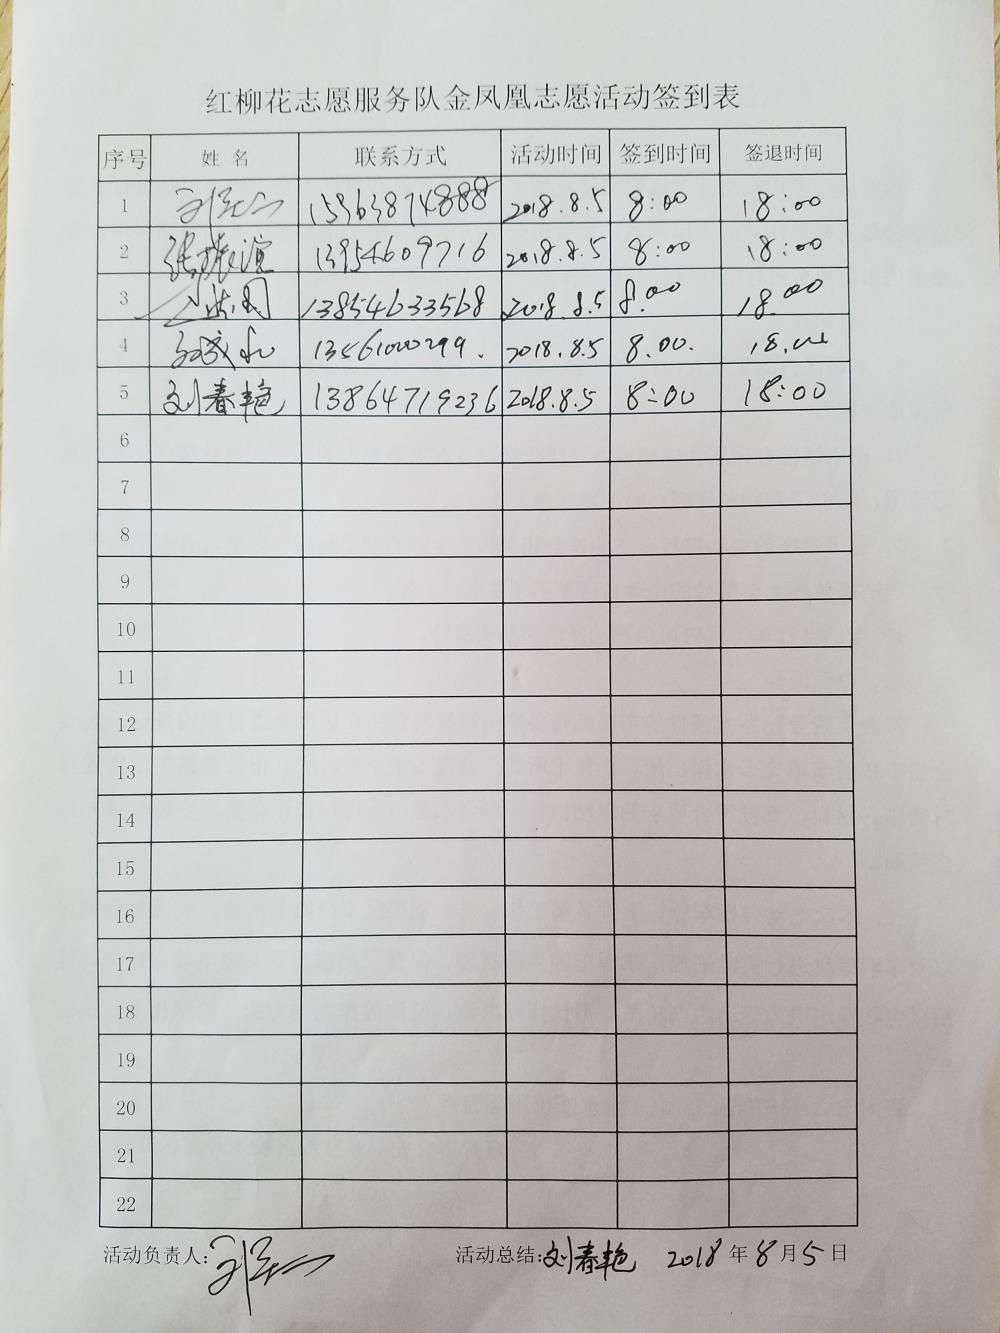 红柳花志愿服务队金凤凰志愿活动签到表
序号 姓 名 联系方式 活动时间 签到时间 签退时间
1 15963874888 2018.8.5 8:00 18:00
2 张振滨 13954609716 2018.8.5 8:00 18:00
3 13854633568 2018.8.5 8:00 18:00
4 13561000299. 2018.8.5 8.00. 18.00
5 刘春艳 13864719236 2018.8.5 8:00 18:00
6
7
8
9
10
11
12
13
14
15
16
17
18
19
20
21
22
活动负责人: 活动总结:刘春艳 2018 年 8 月 5 日